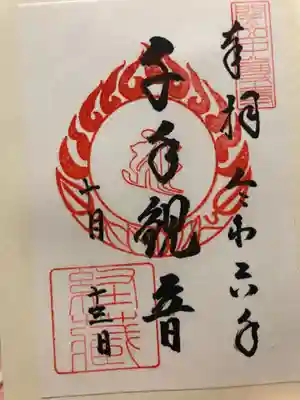 奉拝
令和六年
千手観音
十月
十三日